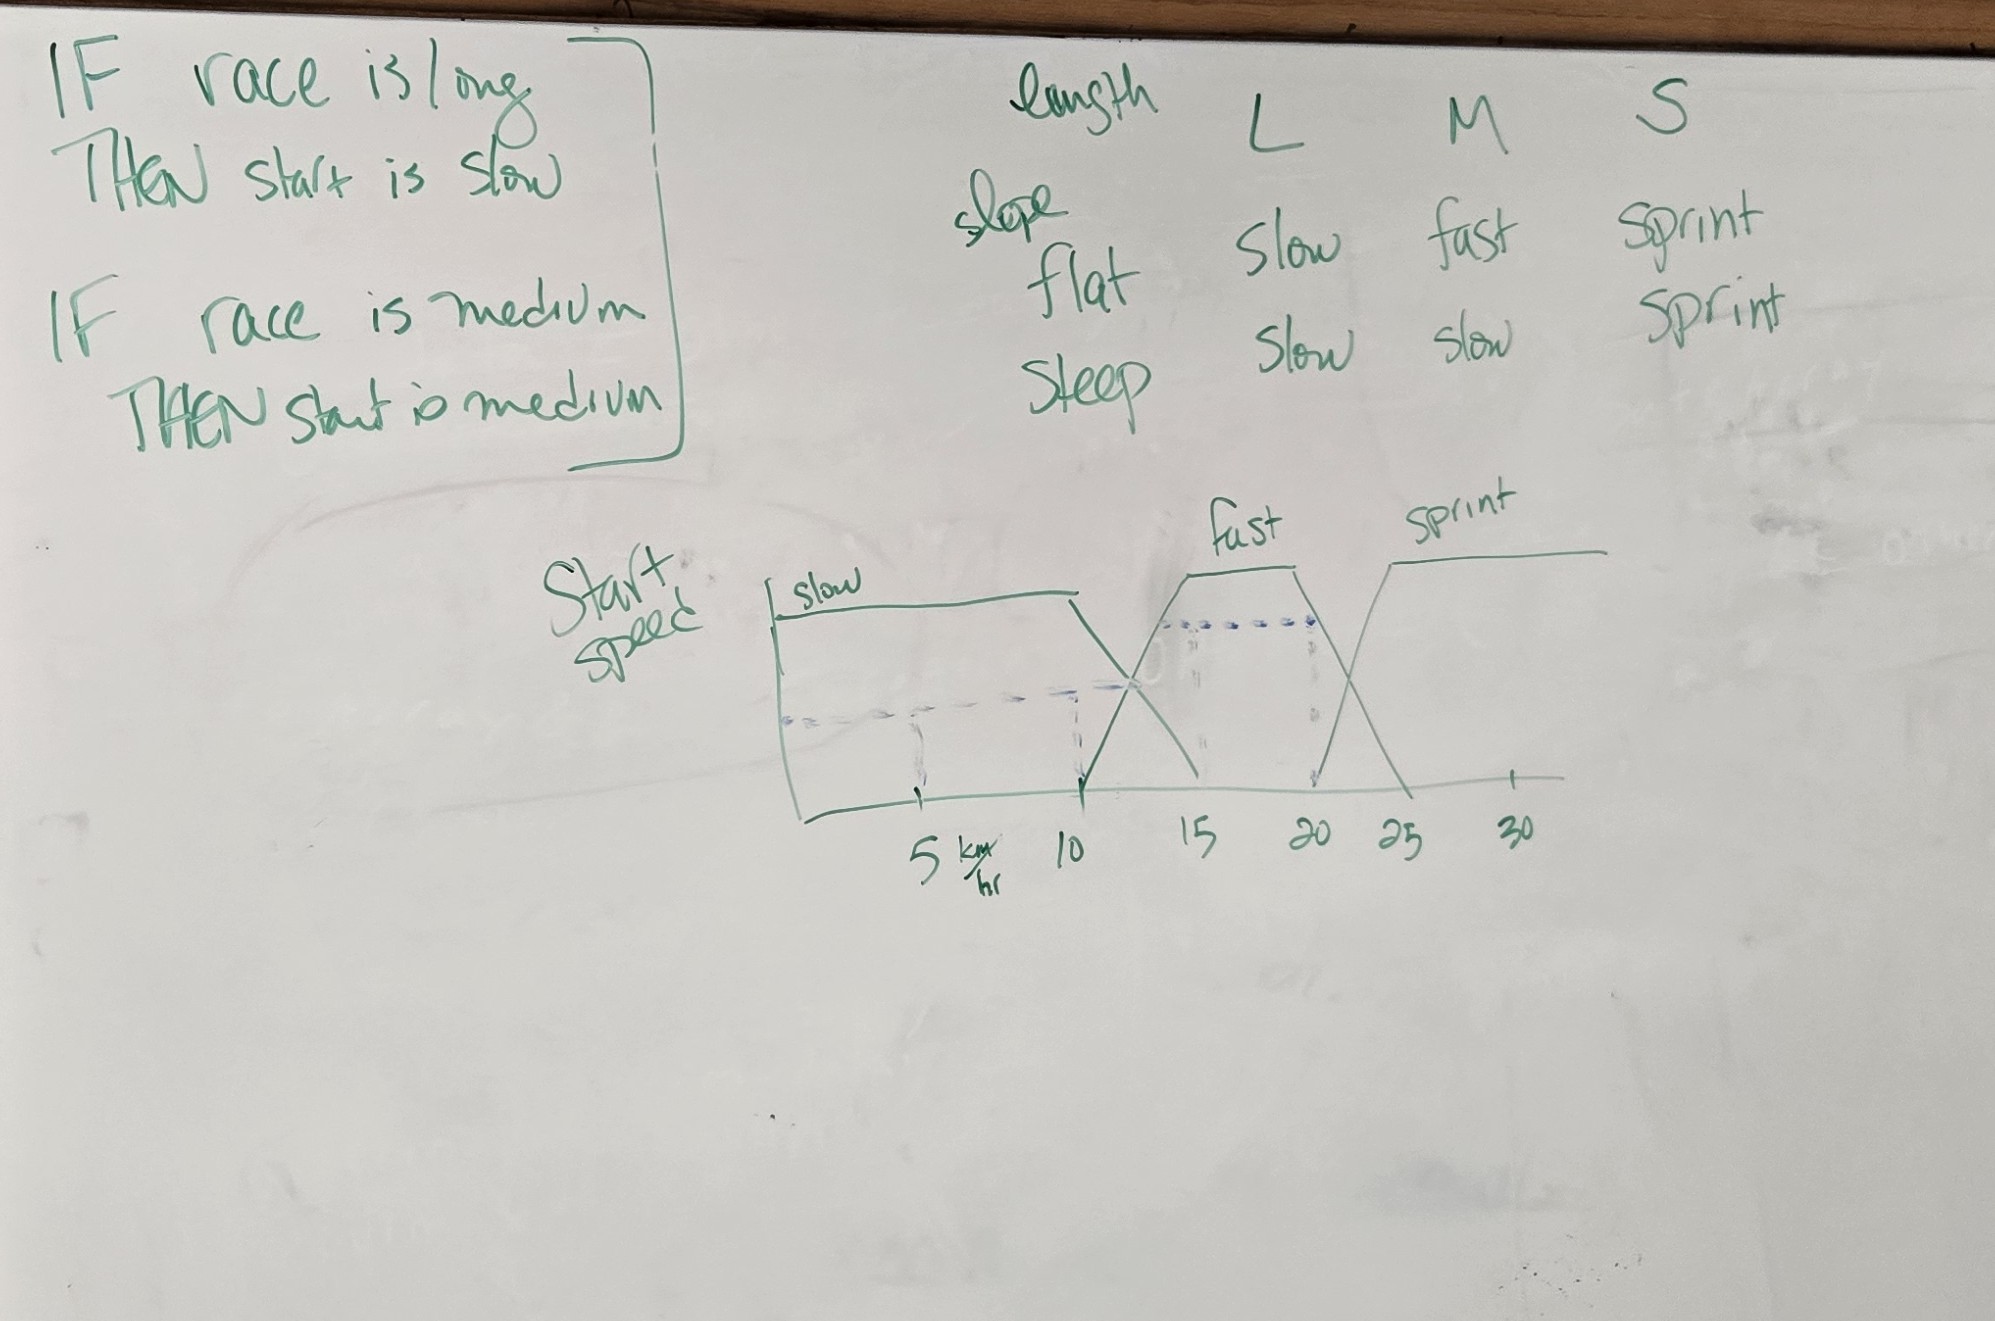 IF race is long
THEN start is slow
IF race is medium
THEN start is medium
length L M S
slope
flat slow fast sprint
steep slow slow sprint
Start speed
slow fast sprint
5 km/hr 10 15 20 25 30